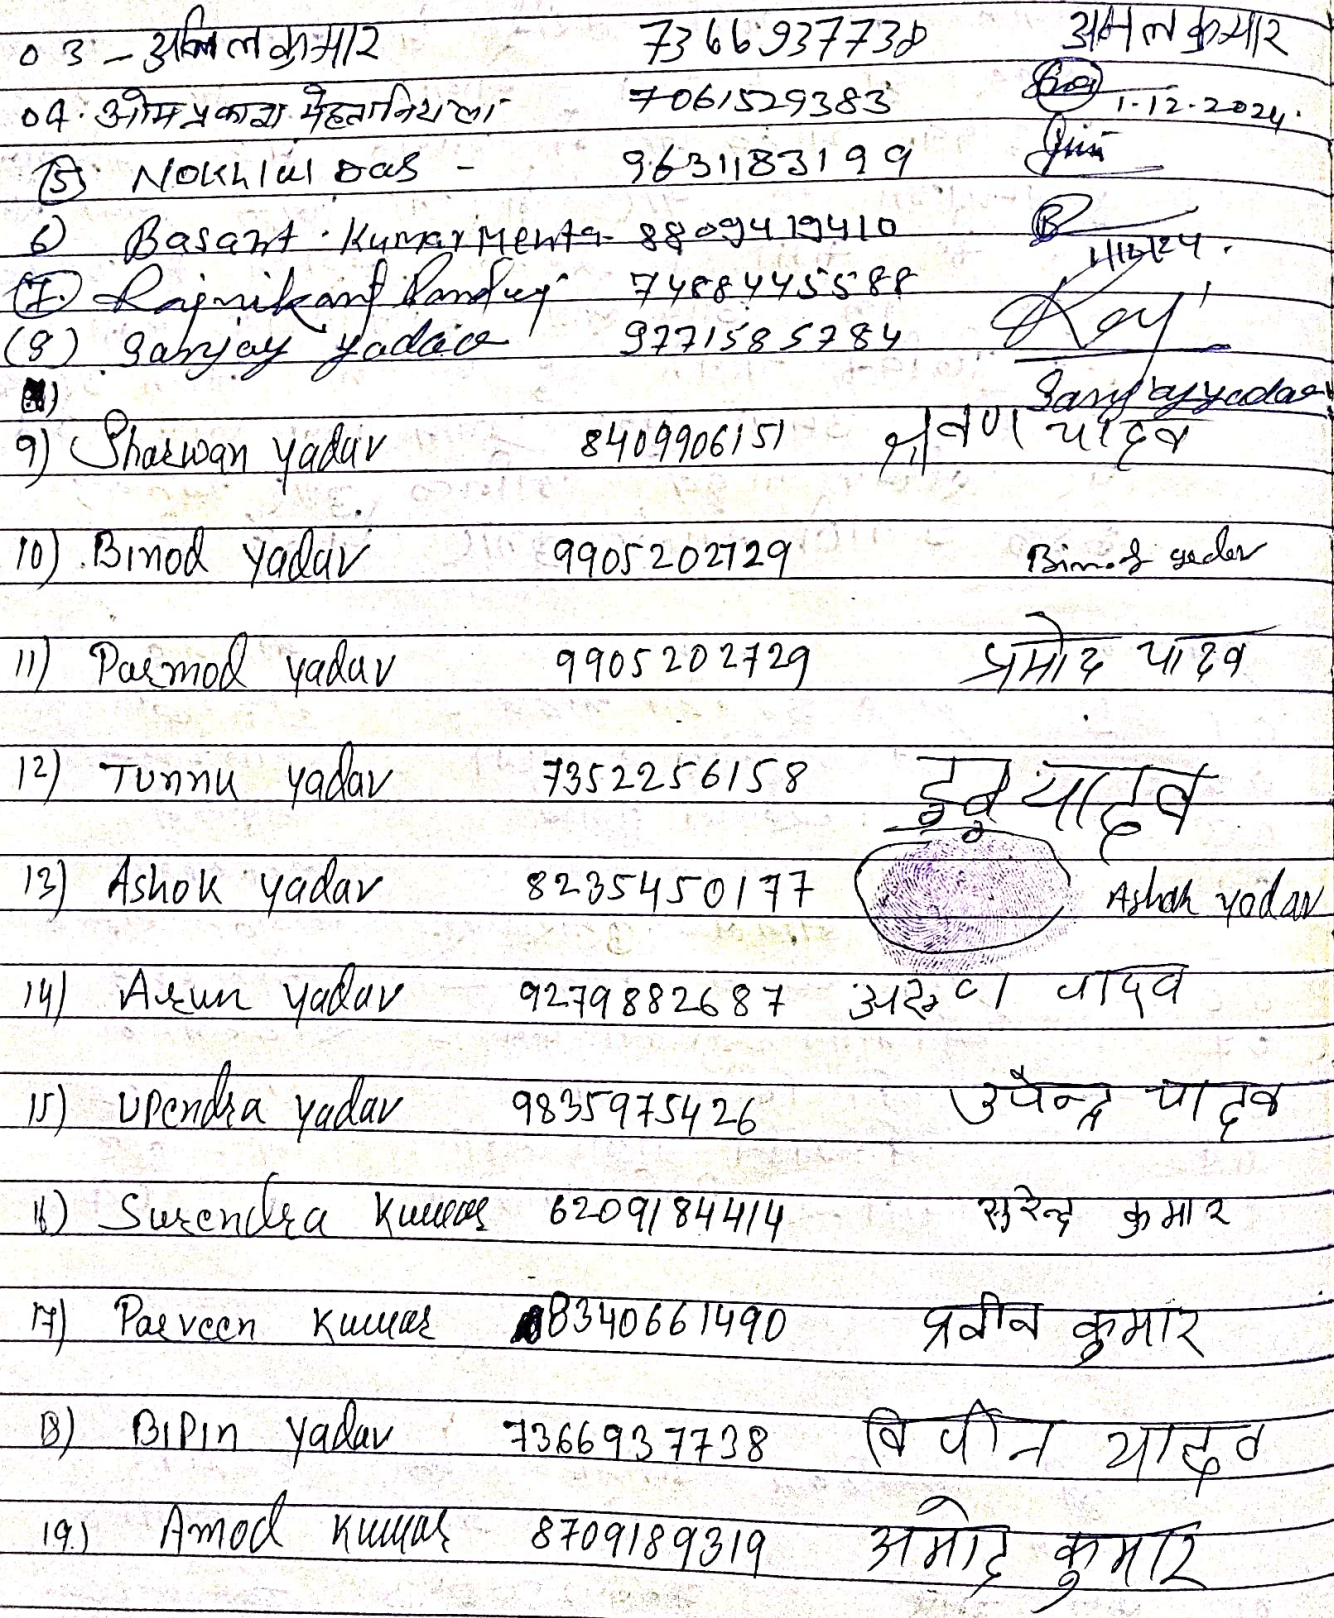 03 - अनिल कुमार 7366937738 अनिल कुमार
04. ओम प्रकाश मेहता निराला 7061529383 1.12.2024.
(5) Nokhlal Das - 9631183199
6) Basant. Kumar Mehta 8809419410 1/12/24.
(7.) Rajnikant Pandey 7488445588 Raj
(8) Sanjay yadav 9771585784
Sanjay yadav
9) Sharwan yadav 8409906151 श्रवण यादव
10) Binod yadav 9905202729 Binod yadav
11) Parmod yadav 9905202729 प्रमोद यादव
12) Tunnu yadav 7352256158 यादव
13) Ashok yadav 8235450177 Ashok yadav
14) Arun yadav 9279882687 अरूण यादव
15) Upendra yadav 9835975426 उपेन्द्र यादव
16) Surendra Kumar 6209184414 सुरेन्द्र कुमार
17) Parveen Kumar 8340661490 प्रवीन कुमार
18) Bipin yadav 7366937738 विपीन यादव
19.) Amod Kumar 8709189319 अमोद कुमार